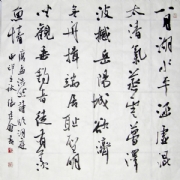 八月湖水平涵虚混
太清氣蒸雲夢澤
波撼岳陽城欲濟
無舟楫端居恥聖明
坐觀垂釣者徒有羡
魚情
孟浩然詩